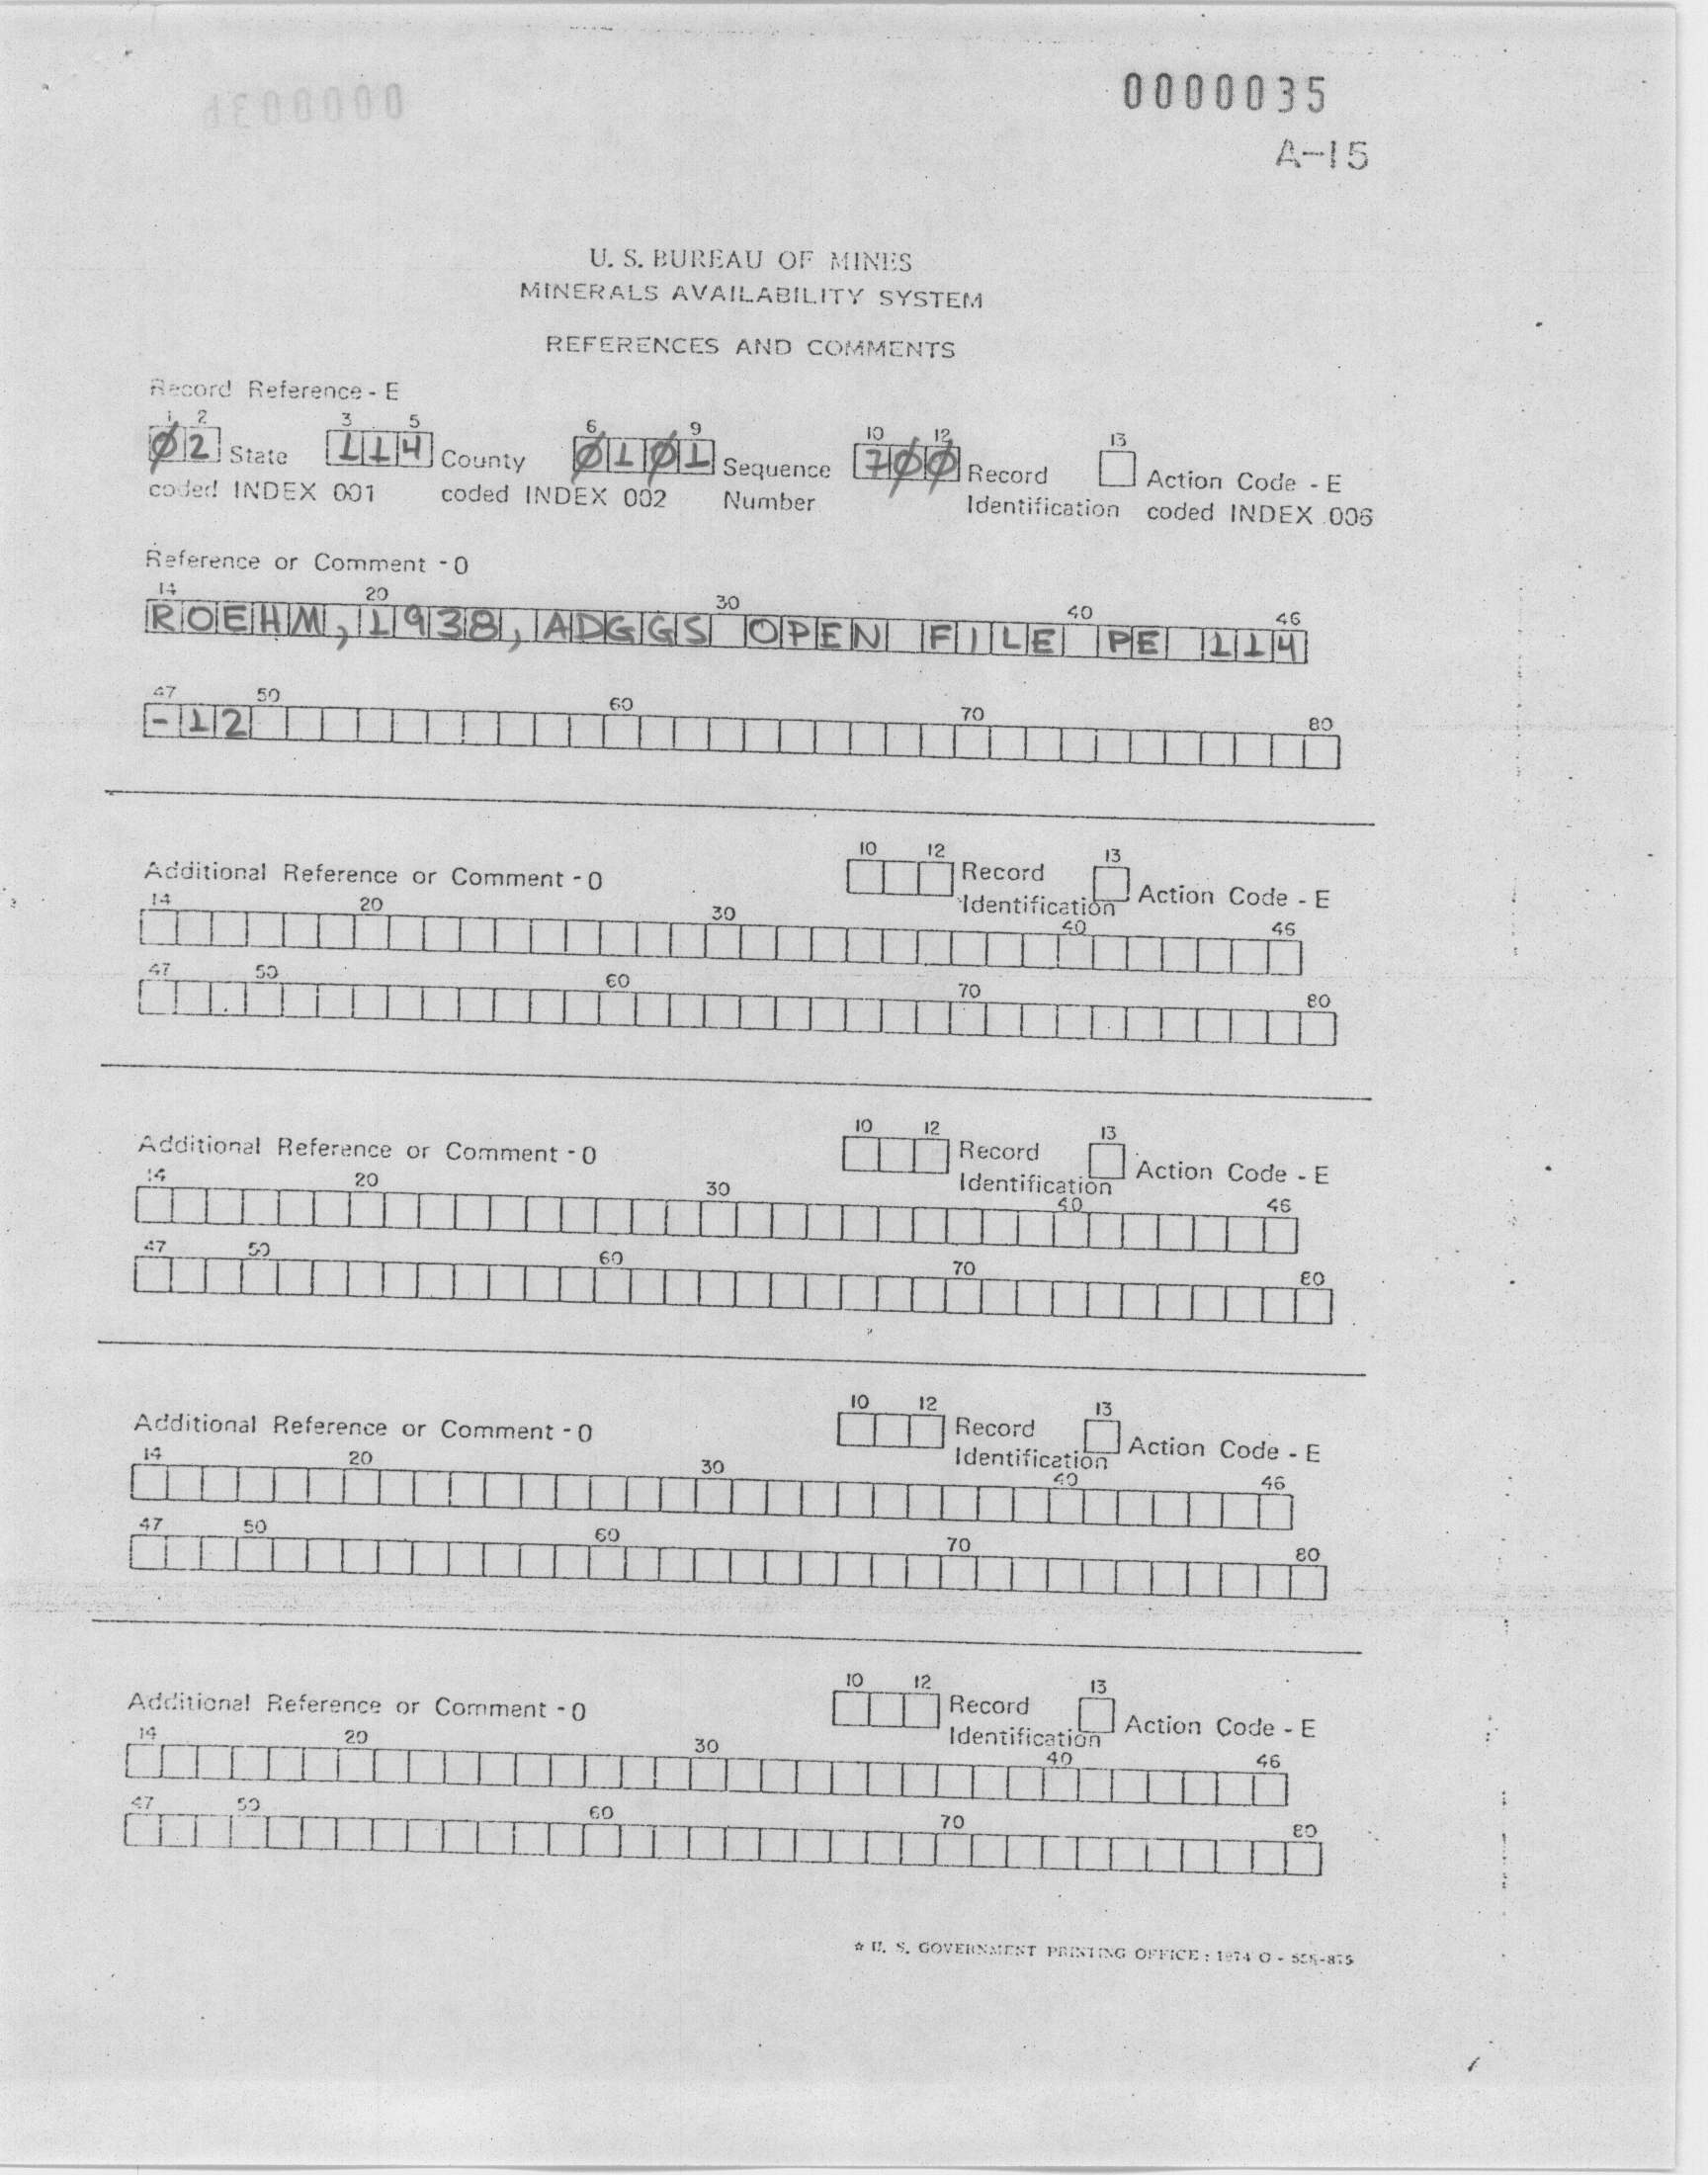 0000035
A-15
U. S. BUREAU OF MINES
MINERALS AVAILABILITY SYSTEM
REFERENCES AND COMMENTS
Record Reference - E
1 2 3 5 6 9 10 12 13
02 State 114 County 0101 Sequence 700 Record Action Code - E
coded INDEX 001 coded INDEX 002 Number Identification coded INDEX 006
Reference or Comment - O
14 20 30 40 46
ROEHM, 1938, ADGGS OPEN FILE PE 114
47 50 60 70 80
-12
10 12 13
Additional Reference or Comment - O Record Action Code - E
Identification
14 20 30 40 46
47 50 60 70 80
10 12 13
Additional Reference or Comment - O Record Action Code - E
Identification
14 20 30 40 46
47 50 60 70 80
10 12 13
Additional Reference or Comment - O Record Action Code - E
Identification
14 20 30 40 46
47 50 60 70 80
10 12 13
Additional Reference or Comment - O Record Action Code - E
Identification
14 20 30 40 46
47 50 60 70 80
☆ U. S. GOVERNMENT PRINTING OFFICE : 1974 O -